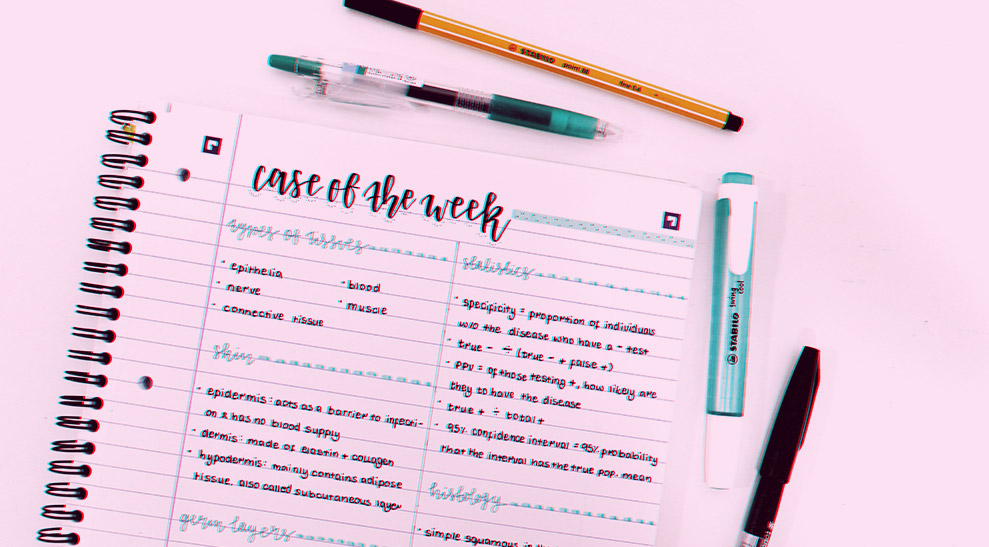 STABILO point 88
case of the week
types of tissues
· epithelia
· blood
· nerve
· muscle
· connective tissue
skin
· epidermis: acts as a barrier to infecti-
on & has no blood supply
· dermis: made of elastin + collagen
· hypodermis: mainly contains adipose
tissue. also called subcutaneous layer
germ layers
statistics
· specificity = proportion of individuals
w/o the disease who have a - test
· true - ÷ (true - + false +)
· PPV = of those testing +, how likely are
they to have the disease
· true + ÷ total +
· 95% confidence interval = 95% probability
that the interval has the true pop. mean
histology
· simple squamous in
STABILO swing cool